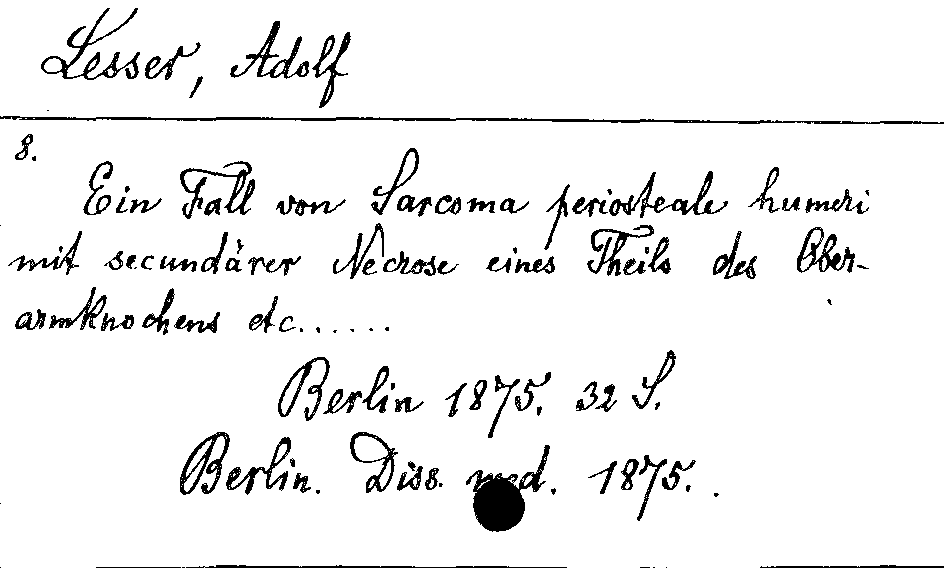 Lesser, Adolf
8.
Ein Fall von Sarcoma periosteale humeri
mit secundärer Necrose eines Theils des Ober-
armknochens etc......
Berlin 1875. 32 S.
Berlin. Diss. med. 1875.